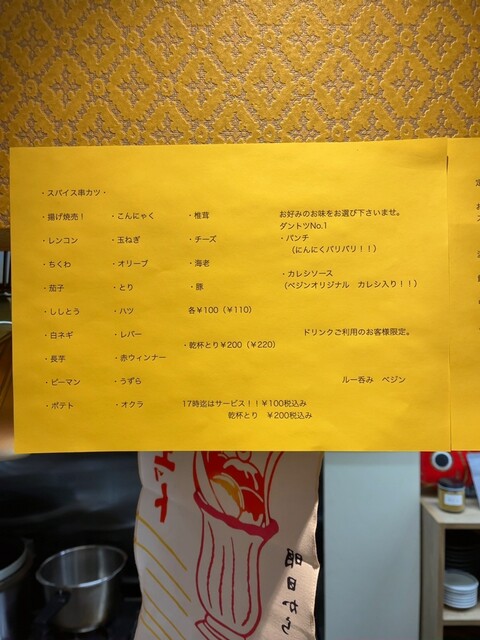 ・スパイス串カツ・
・揚げ焼売！
・レンコン
・ちくわ
・茄子
・ししとう
・白ネギ
・長芋
・ピーマン
・ポテト
・こんにゃく
・玉ねぎ
・オリーブ
・とり
・ハツ
・レバー
・赤ウィンナー
・うずら
・オクラ
・椎茸
・チーズ
・海老
・豚
各￥100（￥110）
・乾杯とり￥200（￥220）
17時迄はサービス！！￥100税込み
乾杯とり　￥200税込み
お好みのお味をお選び下さいませ。
ダントツNo.1
・パンチ
（にんにくバリバリ！！）
・カレシソース
（ペジンオリジナル　カレシ入り！！）
ドリンクご利用のお客様限定。
ルー呑み　ペジン